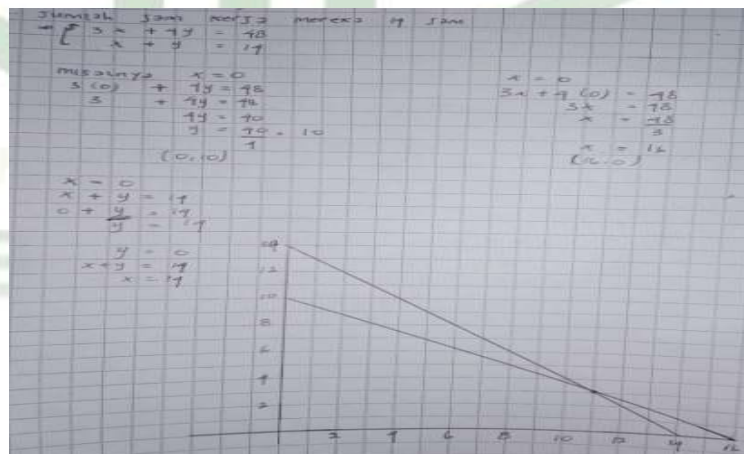 Jumlah jam kerja mereka 14 jam
3x + 4y = 48
x + y = 14
misalnya x = 0
3(0) + 4y = 48
3 + 4y = 48
4y = 40
y = 40/4 = 10
(0,10)
x = 0
3x + 4(0) = 48
3x = 48
x = 48/3
x = 16
(16,0)
x = 0
x + y = 14
0 + y = 14
y = 14
y = 0
x + y = 14
x = 14
14
12
10
8
6
4
2
2 4 6 8 10 12 14 16